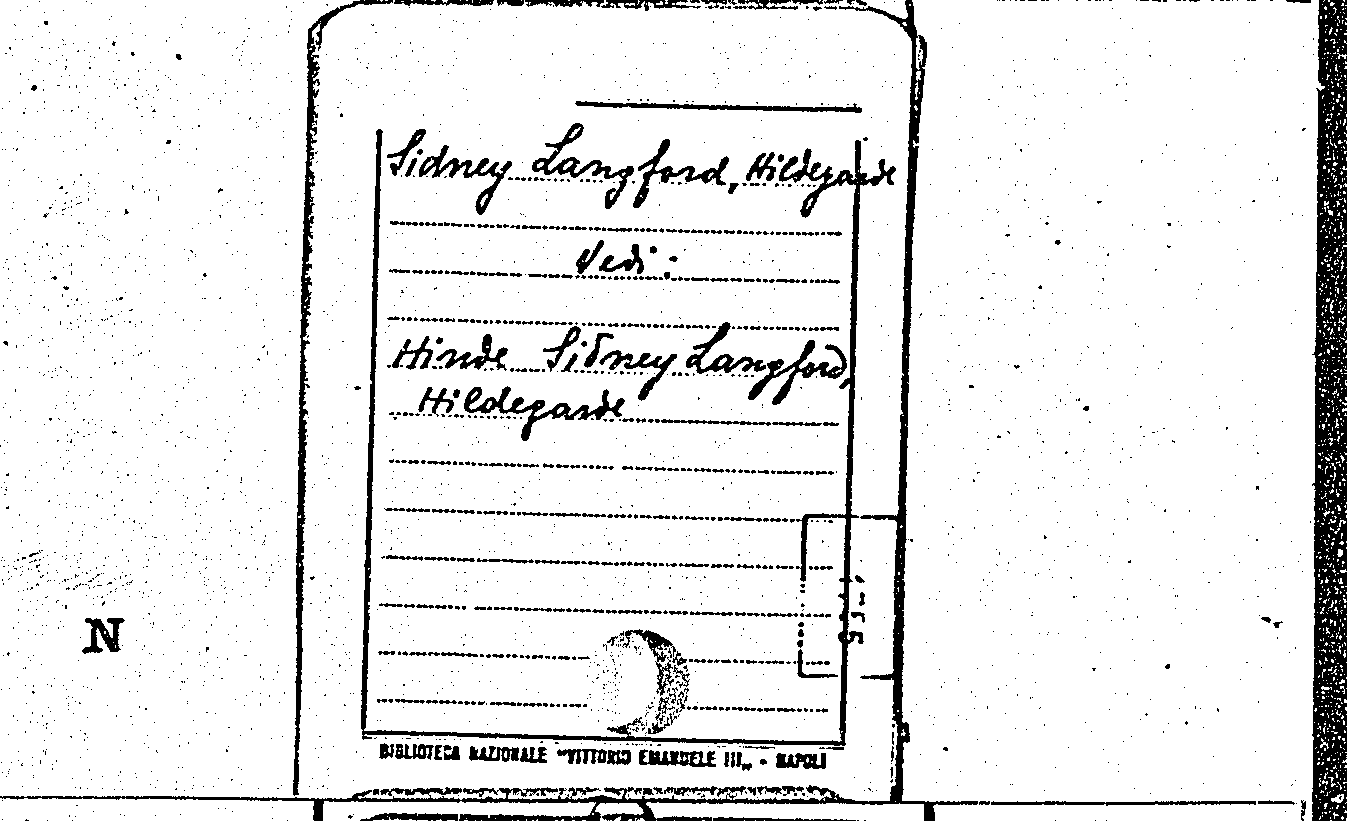 Sidney Langford, Hildegarde
Vedi:
Hinde Sidney Langford,
Hildegarde
N
BIBLIOTECA NAZIONALE "VITTORIO EMANUELE III„ - NAPOLI